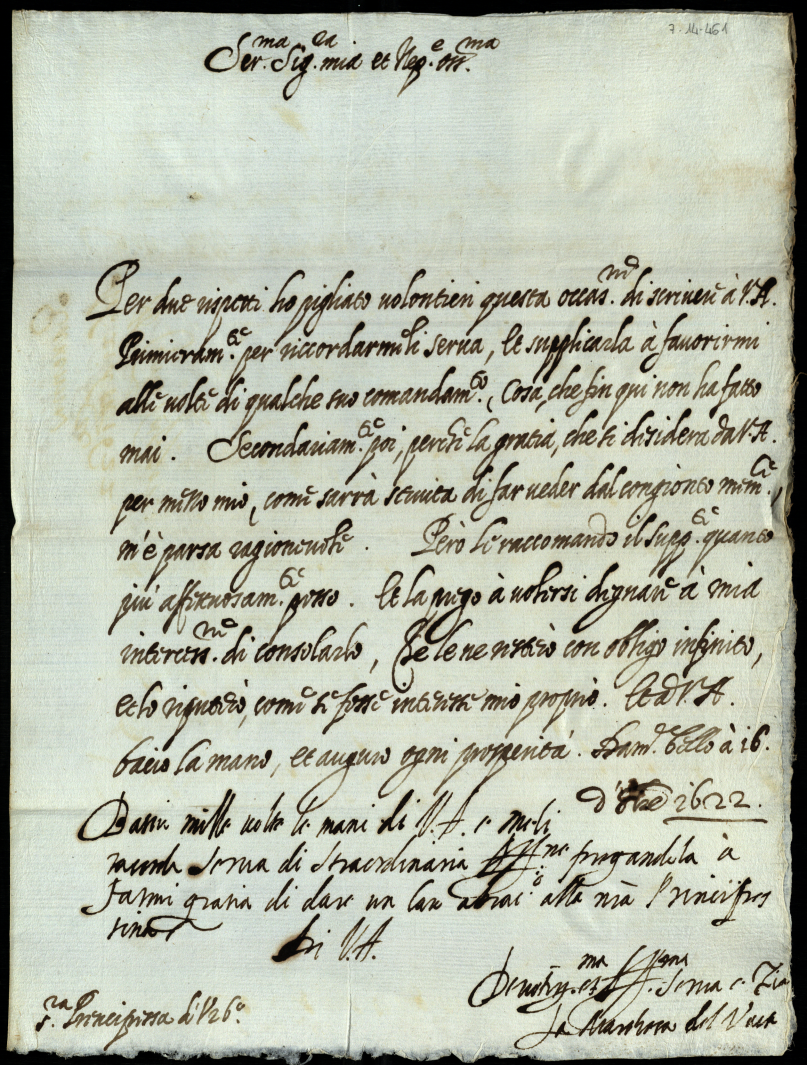 7-14-461
Ser.ma Sig.ra mia et Nep.e oss.ma
Per due rispetti ho pigliato volontieri questa occas.ne di scrivere à V.A.
Primieram.te per riccordarmeli serva, et supplicarla à favorirmi
alle volte di qualche suo comandam.to, cosa, che fin qui non ha fatto
mai. Secondariam.te poi, perche la gratia, che si disidera da V.A.
per mezzo mio, come sarrà servita di far veder dal congionto mem.le,
m'è parsa ragionevole. Però le raccomando il supp.te quanto
più affettuosam.te posso. Et la prego à volersi dignare à mia
intercess.ne di consolarlo, che le ne resterò con obligo infinito,
et lo riputerò, come se fosse interesse mio proprio. Et à V.A.
bacio la mano, et auguro ogni prosperità. à 16.
d' 1622.
Bascio mille volte le mani di V.A. e me li
racordo serva di straordinaria aff.ne pregandola à
farmi gratia di dare un caro abrac.o alla mia Principess
sina
Di V.A.
Devotis.ma et aff.ma serva e Zia
la Marchesa del Vasto
s.ra Principessa d'Urb.o